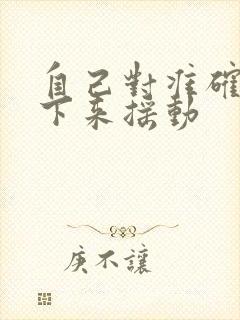 自己對准確
下来摇動
庚不讓